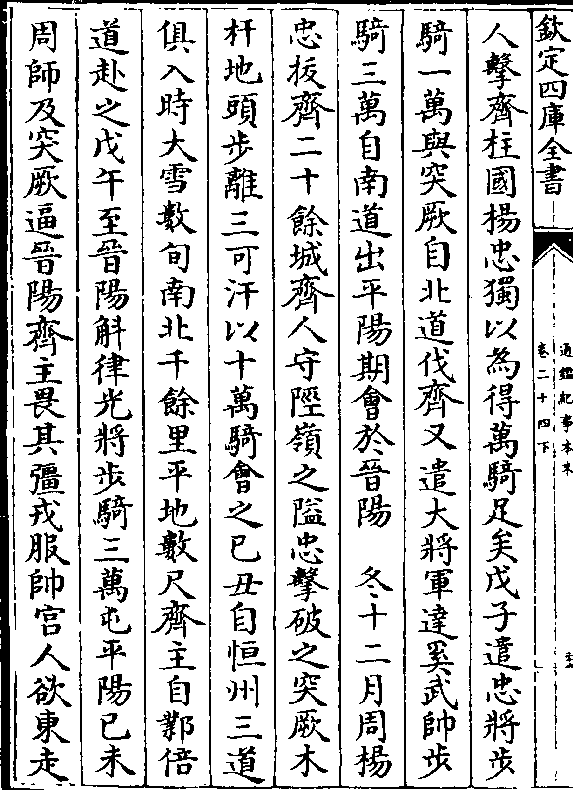 欽定四庫全書
通鑑紀事本末
卷二十四下
人擊齊柱國楊忠獨以為得萬騎足矣戊子遣忠將步
騎一萬與突厥自北道伐齊又遣大將軍達奚武帥步
騎三萬自南道出平陽期會於晉陽　冬十二月周楊
忠拔齊二十餘城齊人守陘嶺之隘忠擊破之突厥木
杆地頭步離三可汗以十萬騎會之已丑自恒州三道
俱入時大雪數旬南北千餘里平地數尺齊主自鄴倍
道赴之戊午至晉陽斛律光將步騎三萬屯平陽已未
周師及突厥逼晉陽齊主畏其彊戎服帥宫人欲東走